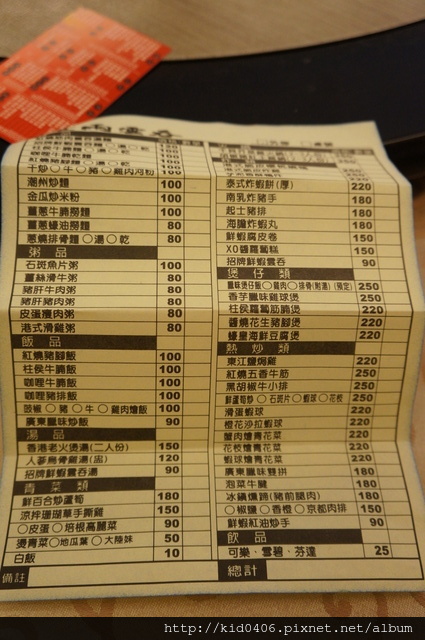 潮州炒麵 100
金瓜炒米粉 100
薑蔥牛腩撈麵 100
薑蔥蠔油撈麵 80
蔥燒排骨麵○湯○乾 80
粥品
石斑魚片粥 100
薑絲滑牛粥 80
豬肝牛肉粥 80
豬肝豬肉粥 80
皮蛋瘦肉粥 80
港式滑雞粥 80
飯品
紅燒豬腳飯 100
柱侯牛腩飯 100
咖哩牛腩飯 100
咖哩豬排飯 100
豉椒○豬○牛○雞肉燴飯 100
廣東臘味炒飯 90
湯品
香港老火煲湯(二人份) 150
人蔘烏骨雞湯(盅) 120
招牌鮮蝦雲吞湯 90
青菜類
鮮百合炒蘆筍 180
涼拌珊瑚草手撕雞 150
○皮蛋○培根高麗菜 90
燙青菜○地瓜葉○大陸妹 50
白飯 10
備註
泰式炸蝦餅(厚) 220
南乳炸豬手 180
起士豬排 180
海膽炸蝦丸 180
鮮蝦腐皮卷 150
XO醬蘿蔔糕 150
招牌鮮蝦雲吞 90
煲仔類
臘味煲仔飯○雞肉○排骨(附湯)(預定) 250
香芋臘味雞球煲 250
柱侯蘿蔔筋腩煲 220
醬燒花生豬腳煲 220
蠔皇海鮮豆腐煲 220
熱炒類
東江鹽焗雞 220
紅燒五香牛筋 250
黑胡椒牛小排 250
鮮蘆筍炒○石斑片○蝦球○花枝 250
滑蛋蝦球 220
橙花沙拉蝦球 220
蟹肉燴青花菜 220
花枝燴青花菜 220
蝦球燴青花菜 220
廣東臘味雙拼 180
泡菜牛腱 180
冰鎮燻蹄(豬前腿肉) 180
○椒鹽○香橙○京都肉排 150
鮮蝦紅油炒手 90
飲品
可樂、雪碧、芬達 25
總計
http://kid0406.pixnet.net/album